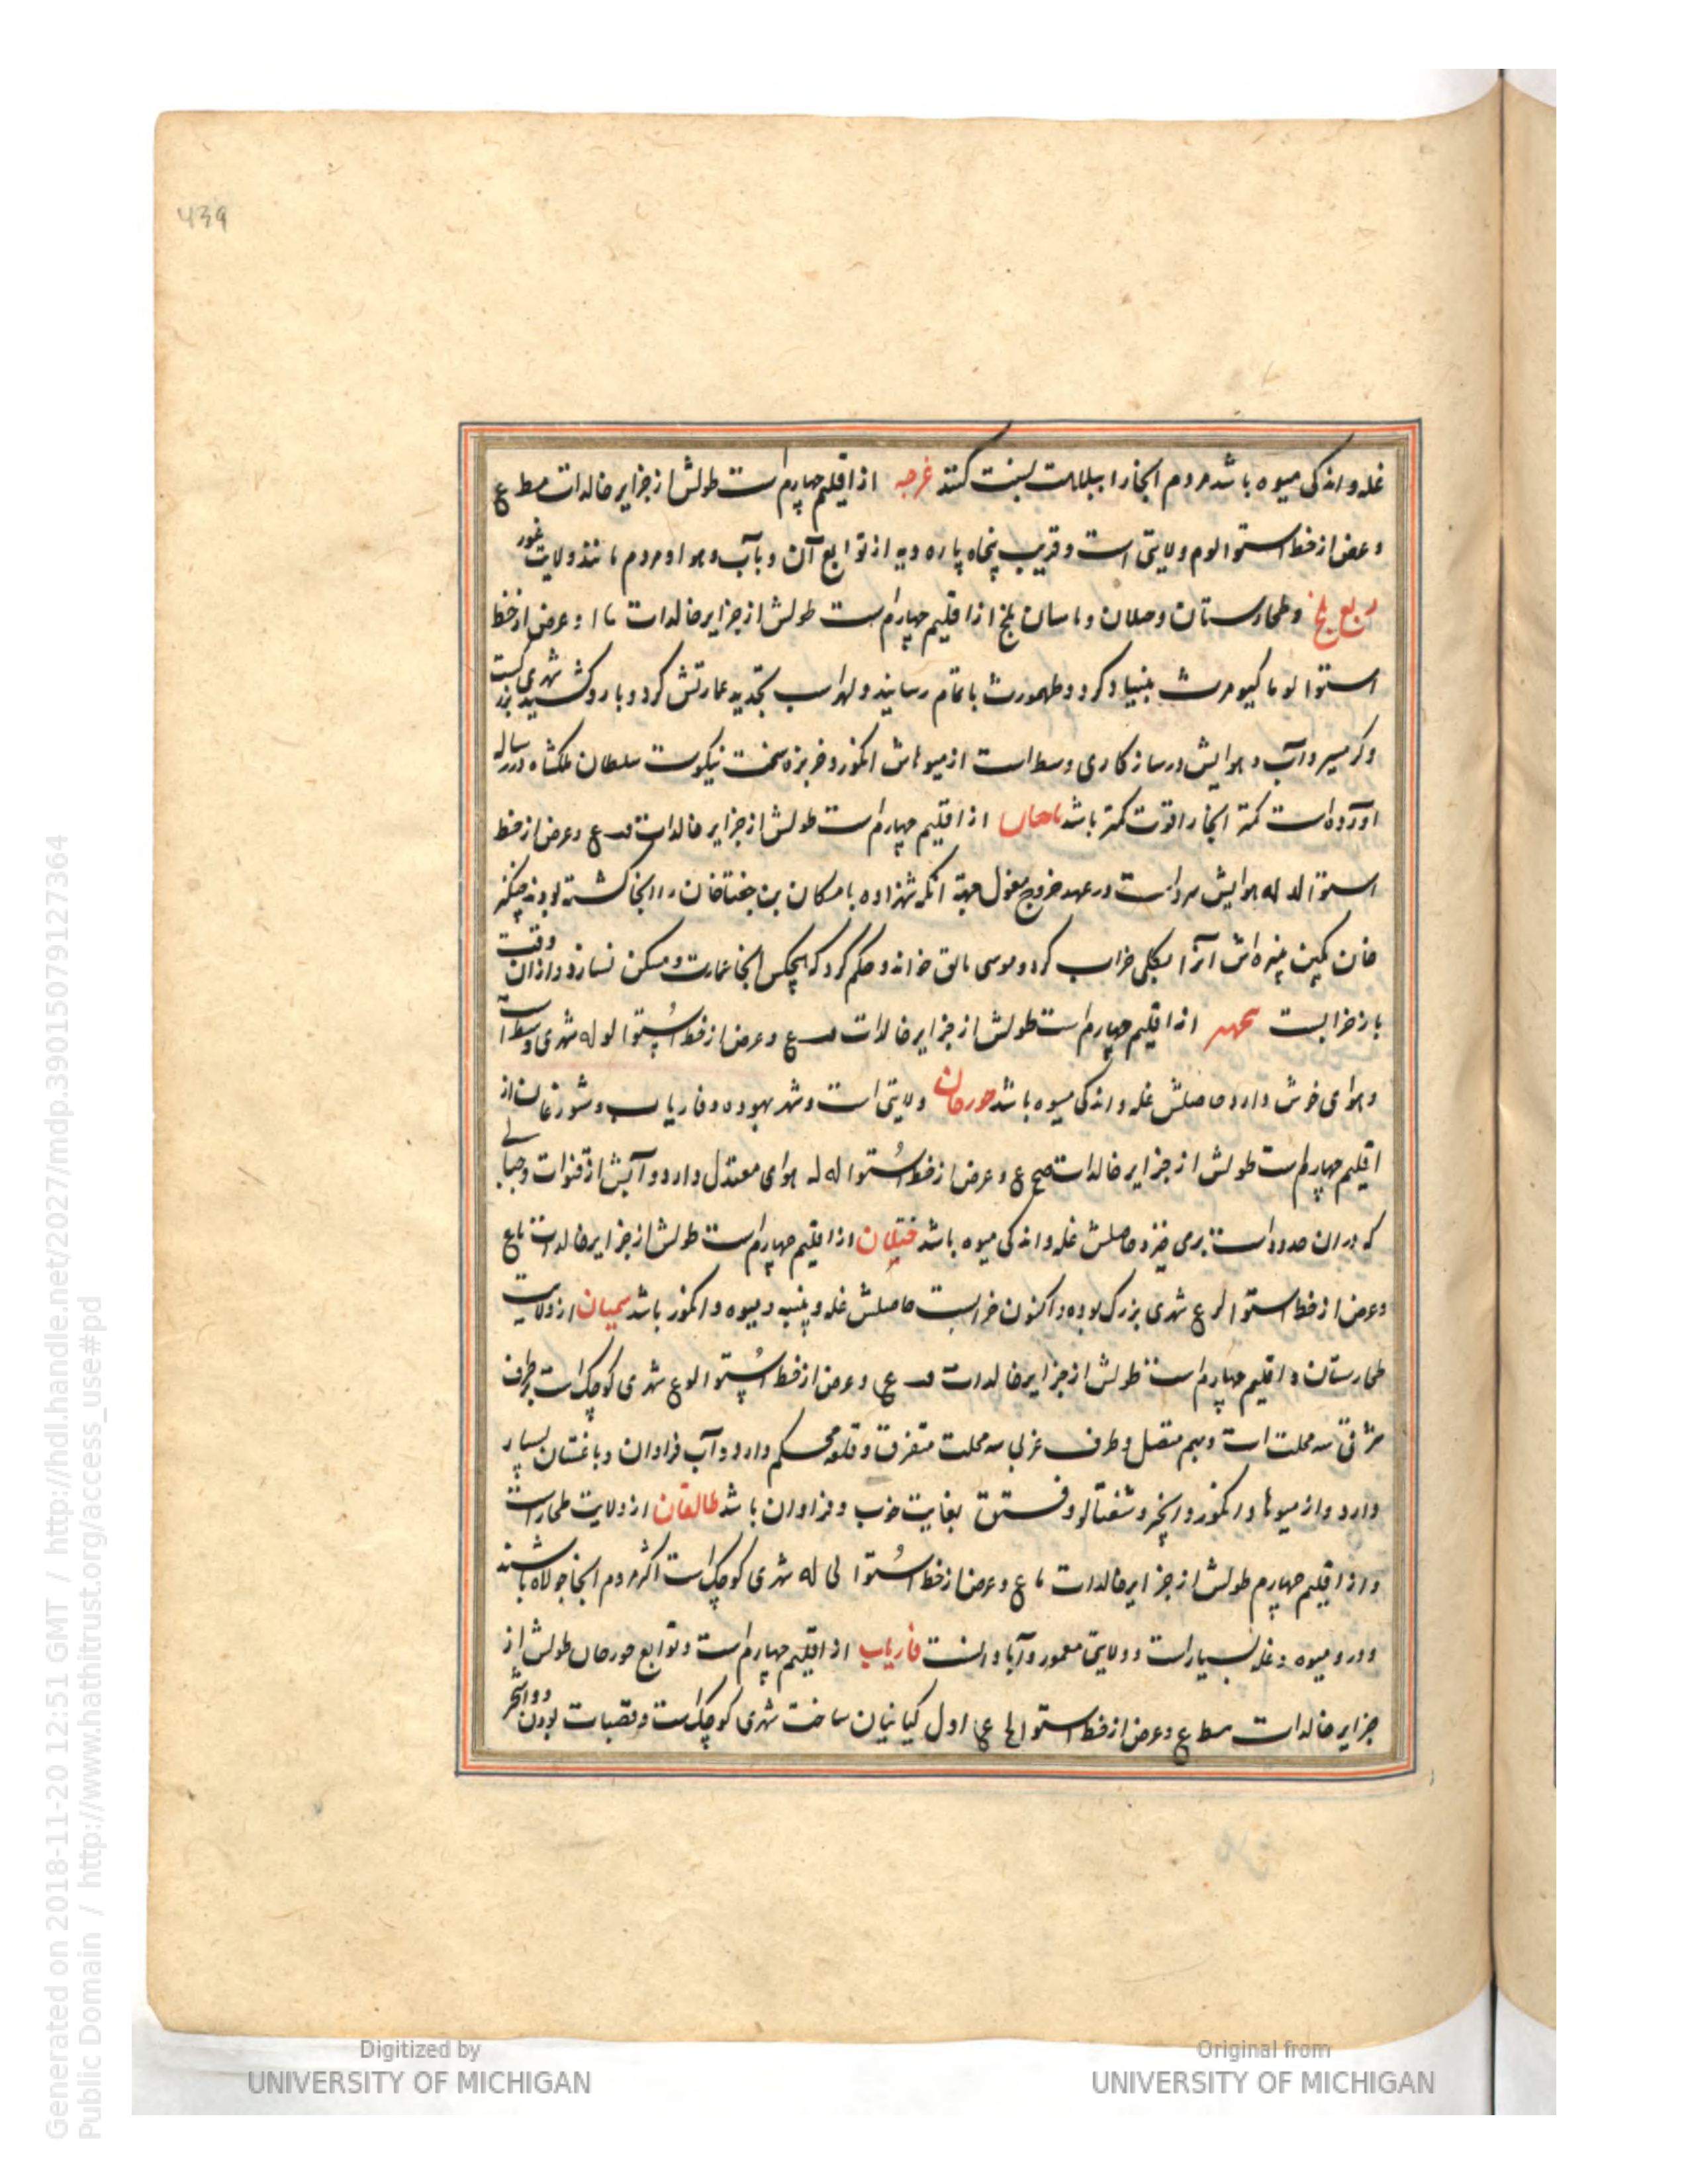 439
غله و اندکی میوه باشد مردم آنجا را ببلاهت نسبت کنند غرجه از اقلیم چهارم است طولش از جزایر خالدات مط ع
و عرض از خط استوا لوم ولایتی است و قریب پنجاه پاره دیه از توابع آن و بآب و هوا و مردم مانند ولایت غور
ربع بلخ و طخارستان و ختلان و بامیان بلخ از اقلیم چهارم است طولش از جزایر خالدات ما ا و عرض از خط
استوا لو ما کیومرث بنیاد کرد و طهمورث باتمام رسانید و لهراسب تجدید عمارتش کرد و بارو کشید شهری بزرگست
و گرمسیر و آب و هوایش در سازگاری وسط است از میوهاش انگور و خربزه سخت نیکوست سلطان ملکشاه در رساله
آورده است کمتر آنجا را قوت کمتر باشد بامیان از اقلیم چهارم است طولش از جزایر خالدات قب ع و عرض از خط
استوا لد له هوایش سرد است در عهد خروج مغول جهة آنکه شهزاده بامکان بن جغتاخان را آنجا کشته بودند چنگیز
خان بکین نبیره‌اش آنرا بکلی خراب کرد و موسی بالق خواند و حکم کرد که هیچکس آنجا عمارت و مسکن نسازد و از آن وقت
باز خرابست از اقلیم چهارم است طولش از جزایر خالدات قب ع و عرض از خط استوا لو له شهری وسط است
و هوای خوش دارد حاصلش غله و اندکی میوه باشد جوزجان ولایتی است و شهر یهودیه و فاریاب و شبورغان از
اقلیم چهارم است طولش از جزایر خالدات صح ع و عرض از خط استوا له له هوای معتدل دارد و آبش از قنوات و جبالی
که در آن حدود است برمی خیزد حاصلش غله و اندکی میوه باشد ختلان از اقلیم چهارم است طولش از جزایر خالدات ما ع
و عرض از خط استوا لر ع شهری بزرگ بوده و اکنون خرابست حاصلش غله و پنبه و میوه و انگور باشد سمنجان از ولایت
طخارستان و اقلیم چهارم است طولش از جزایر خالدات قب ع و عرض از خط استوا لو ع شهری کوچک است بر طرف
شرقی سه محلت است و بهم متصل و طرف غربی سه محلت متفرق و قلعه محکم دارد و آب فراوان و باغستان بسیار
دارد و از میوها و انگور و انجیر و شفتالو و فستق بغایت خوب و فراوان باشد طالقان از ولایت طخارستان
و از اقلیم چهارم طولش از جزایر خالدات ما ع و عرض از خط استوا لی له شهری کوچک است اکثر مردم آنجا جولاه باشند
و درو میوه و غله بسیار است و ولایتی معمور و آبادانست فاریاب از اقلیم چهارم است و توابع جوزجان طولش از
جزایر خالدات مط ع و عرض از خط استوا لح ع اول کیانیان ساخت شهری کوچک است و قصبات بودن
Generated on 2018-11-20 12:51 GMT / http://hdl.handle.net/2027/mdp.39015079127364
Public Domain / http://www.hathitrust.org/access_use#pd
Digitized by
UNIVERSITY OF MICHIGAN
Original from
UNIVERSITY OF MICHIGAN